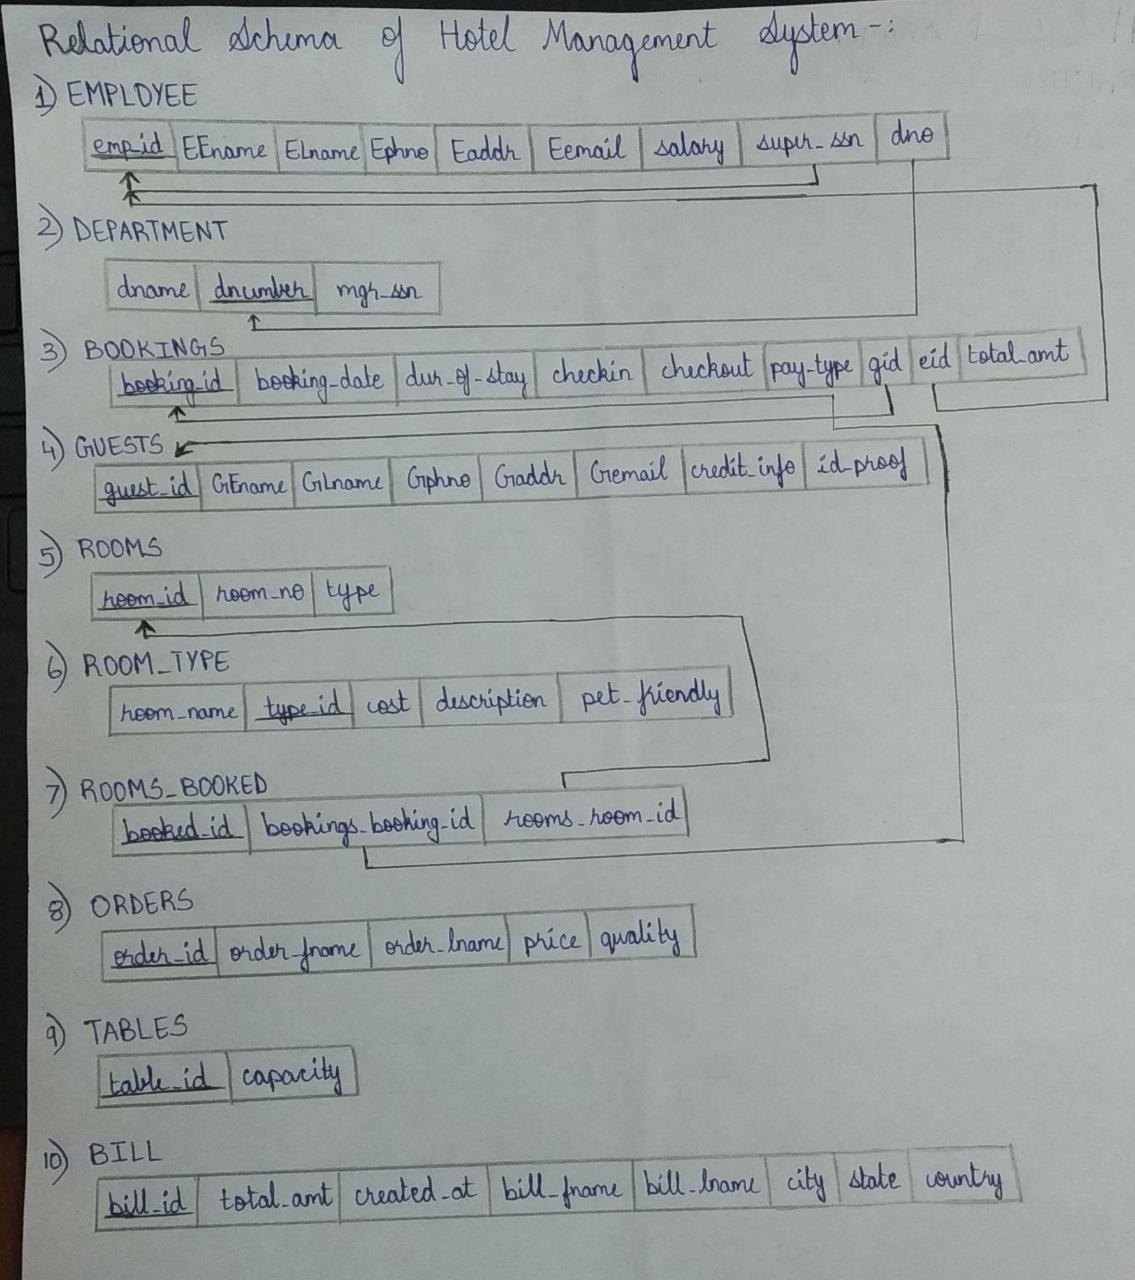 Relational Schema of Hotel Management System-:
1) EMPLOYEE
emp_id EFname ELname Ephno Eaddr Eemail salary super_ssn dno
2) DEPARTMENT
dname dnumber mgr_ssn
3) BOOKINGS
booking_id booking_date dur_of_stay checkin checkout pay_type gid eid total_amt
4) GUESTS
guest_id GFname GLname Gphno Gaddr Gemail credit_info id_proof
5) ROOMS
room_id room_no type
6) ROOM_TYPE
room_name type_id cost description pet_friendly
7) ROOMS_BOOKED
booked_id bookings_booking_id rooms_room_id
8) ORDERS
order_id order_fname order_lname price quality
9) TABLES
table_id capacity
10) BILL
bill_id total_amt created_at bill_fname bill_lname city state country